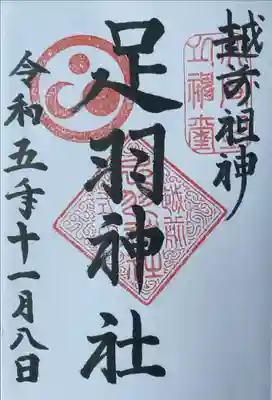 越前祖神
足羽神社
令和五年十一月八日
越前